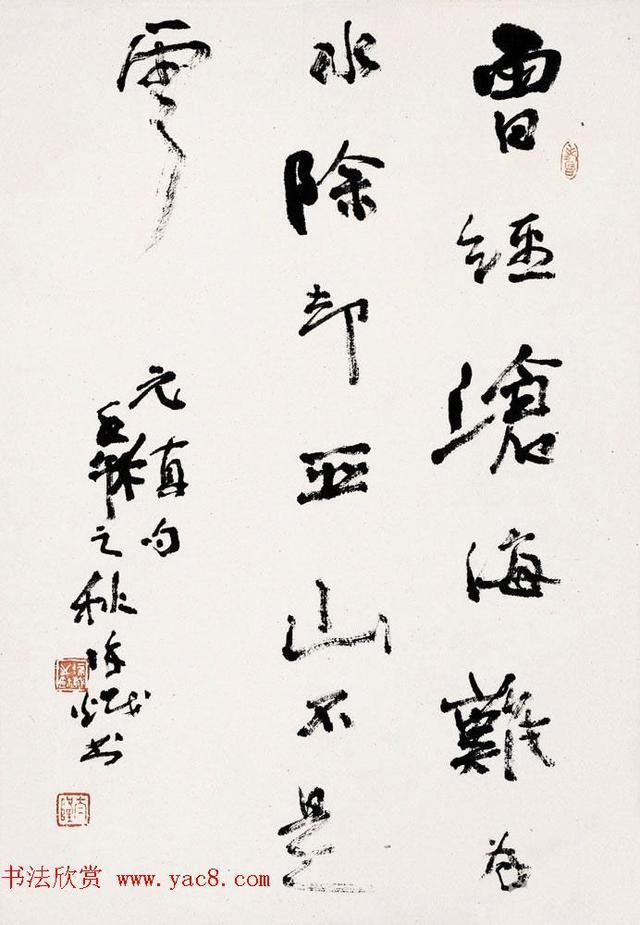 曾經滄海難為
水除却巫山不是
雲
元稹句
之秋 书
书法欣赏 www.yac8.com